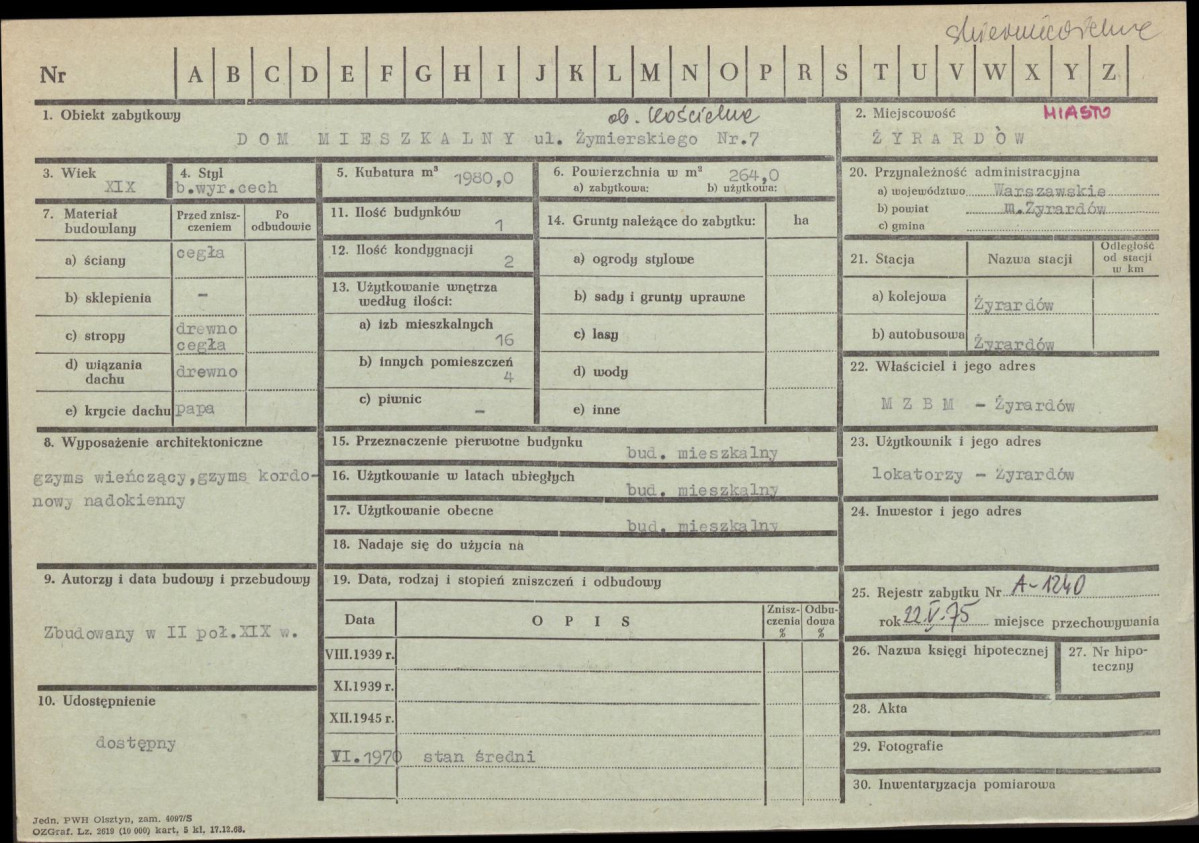 skierniewickie
Nr A B C D E F G H I J K L M N O P R S T U V W X Y Z
1. Obiekt zabytkowy
ob. Kościelna
DOM MIESZKALNY ul. Żymierskiego Nr.7
2. Miejscowość MIASTO
ŻYRARDÓW
3. Wiek
XIX
4. Styl
b.wyr.cech
5. Kubatura m³ 1980,0
6. Powierzchnia w m² 264,0
a) zabytkowa: b) użytkowa:
7. Materiał budowlany
Przed znisz-
czeniem
Po
odbudowie
a) ściany cegła
b) sklepienia –
c) stropy drewno
cegła
d) wiązania
dachu drewno
e) krycie dachu papa
8. Wyposażenie architektoniczne
gzyms wieńczący,gzyms kordo-
nowy nadokienny
9. Autorzy i data budowy i przebudowy
Zbudowany w II poł.XIX w.
10. Udostępnienie
dostępny
11. Ilość budynków
1
12. Ilość kondygnacji
2
13. Użytkowanie wnętrza
według ilości:
a) izb mieszkalnych
16
b) innych pomieszczeń
4
c) piwnic
–
14. Grunty należące do zabytku: ha
a) ogrody stylowe
b) sady i grunty uprawne
c) lasy
d) wody
e) inne
15. Przeznaczenie pierwotne budynku
bud. mieszkalny
16. Użytkowanie w latach ubiegłych
bud. mieszkalny
17. Użytkowanie obecne
bud. mieszkalny
18. Nadaje się do użycia na
19. Data, rodzaj i stopień zniszczeń i odbudowy
Data OPIS
Znisz-
czenia
%
Odbu-
dowa
%
VIII.1939 r.
XI.1939 r.
XII.1945 r.
VI.1970 stan średni
20. Przynależność administracyjna
a) województwo Warszawskie
b) powiat m.Żyrardów
c) gmina
21. Stacja Nazwa stacji
Odległość
od stacji
w km
a) kolejowa Żyrardów
b) autobusowa Żyrardów
22. Właściciel i jego adres
MZBM – Żyrardów
23. Użytkownik i jego adres
lokatorzy – Żyrardów
24. Inwestor i jego adres
25. Rejestr zabytku Nr A-1240
rok 22.V.75 miejsce przechowywania
26. Nazwa księgi hipotecznej
27. Nr hipo-
teczny
28. Akta
29. Fotografie
30. Inwentaryzacja pomiarowa
Jedn. PWH Olsztyn, zam. 4097/S
OZGraf. Lz. 2619 (10 000) kart. 5 kl. 17.12.68.